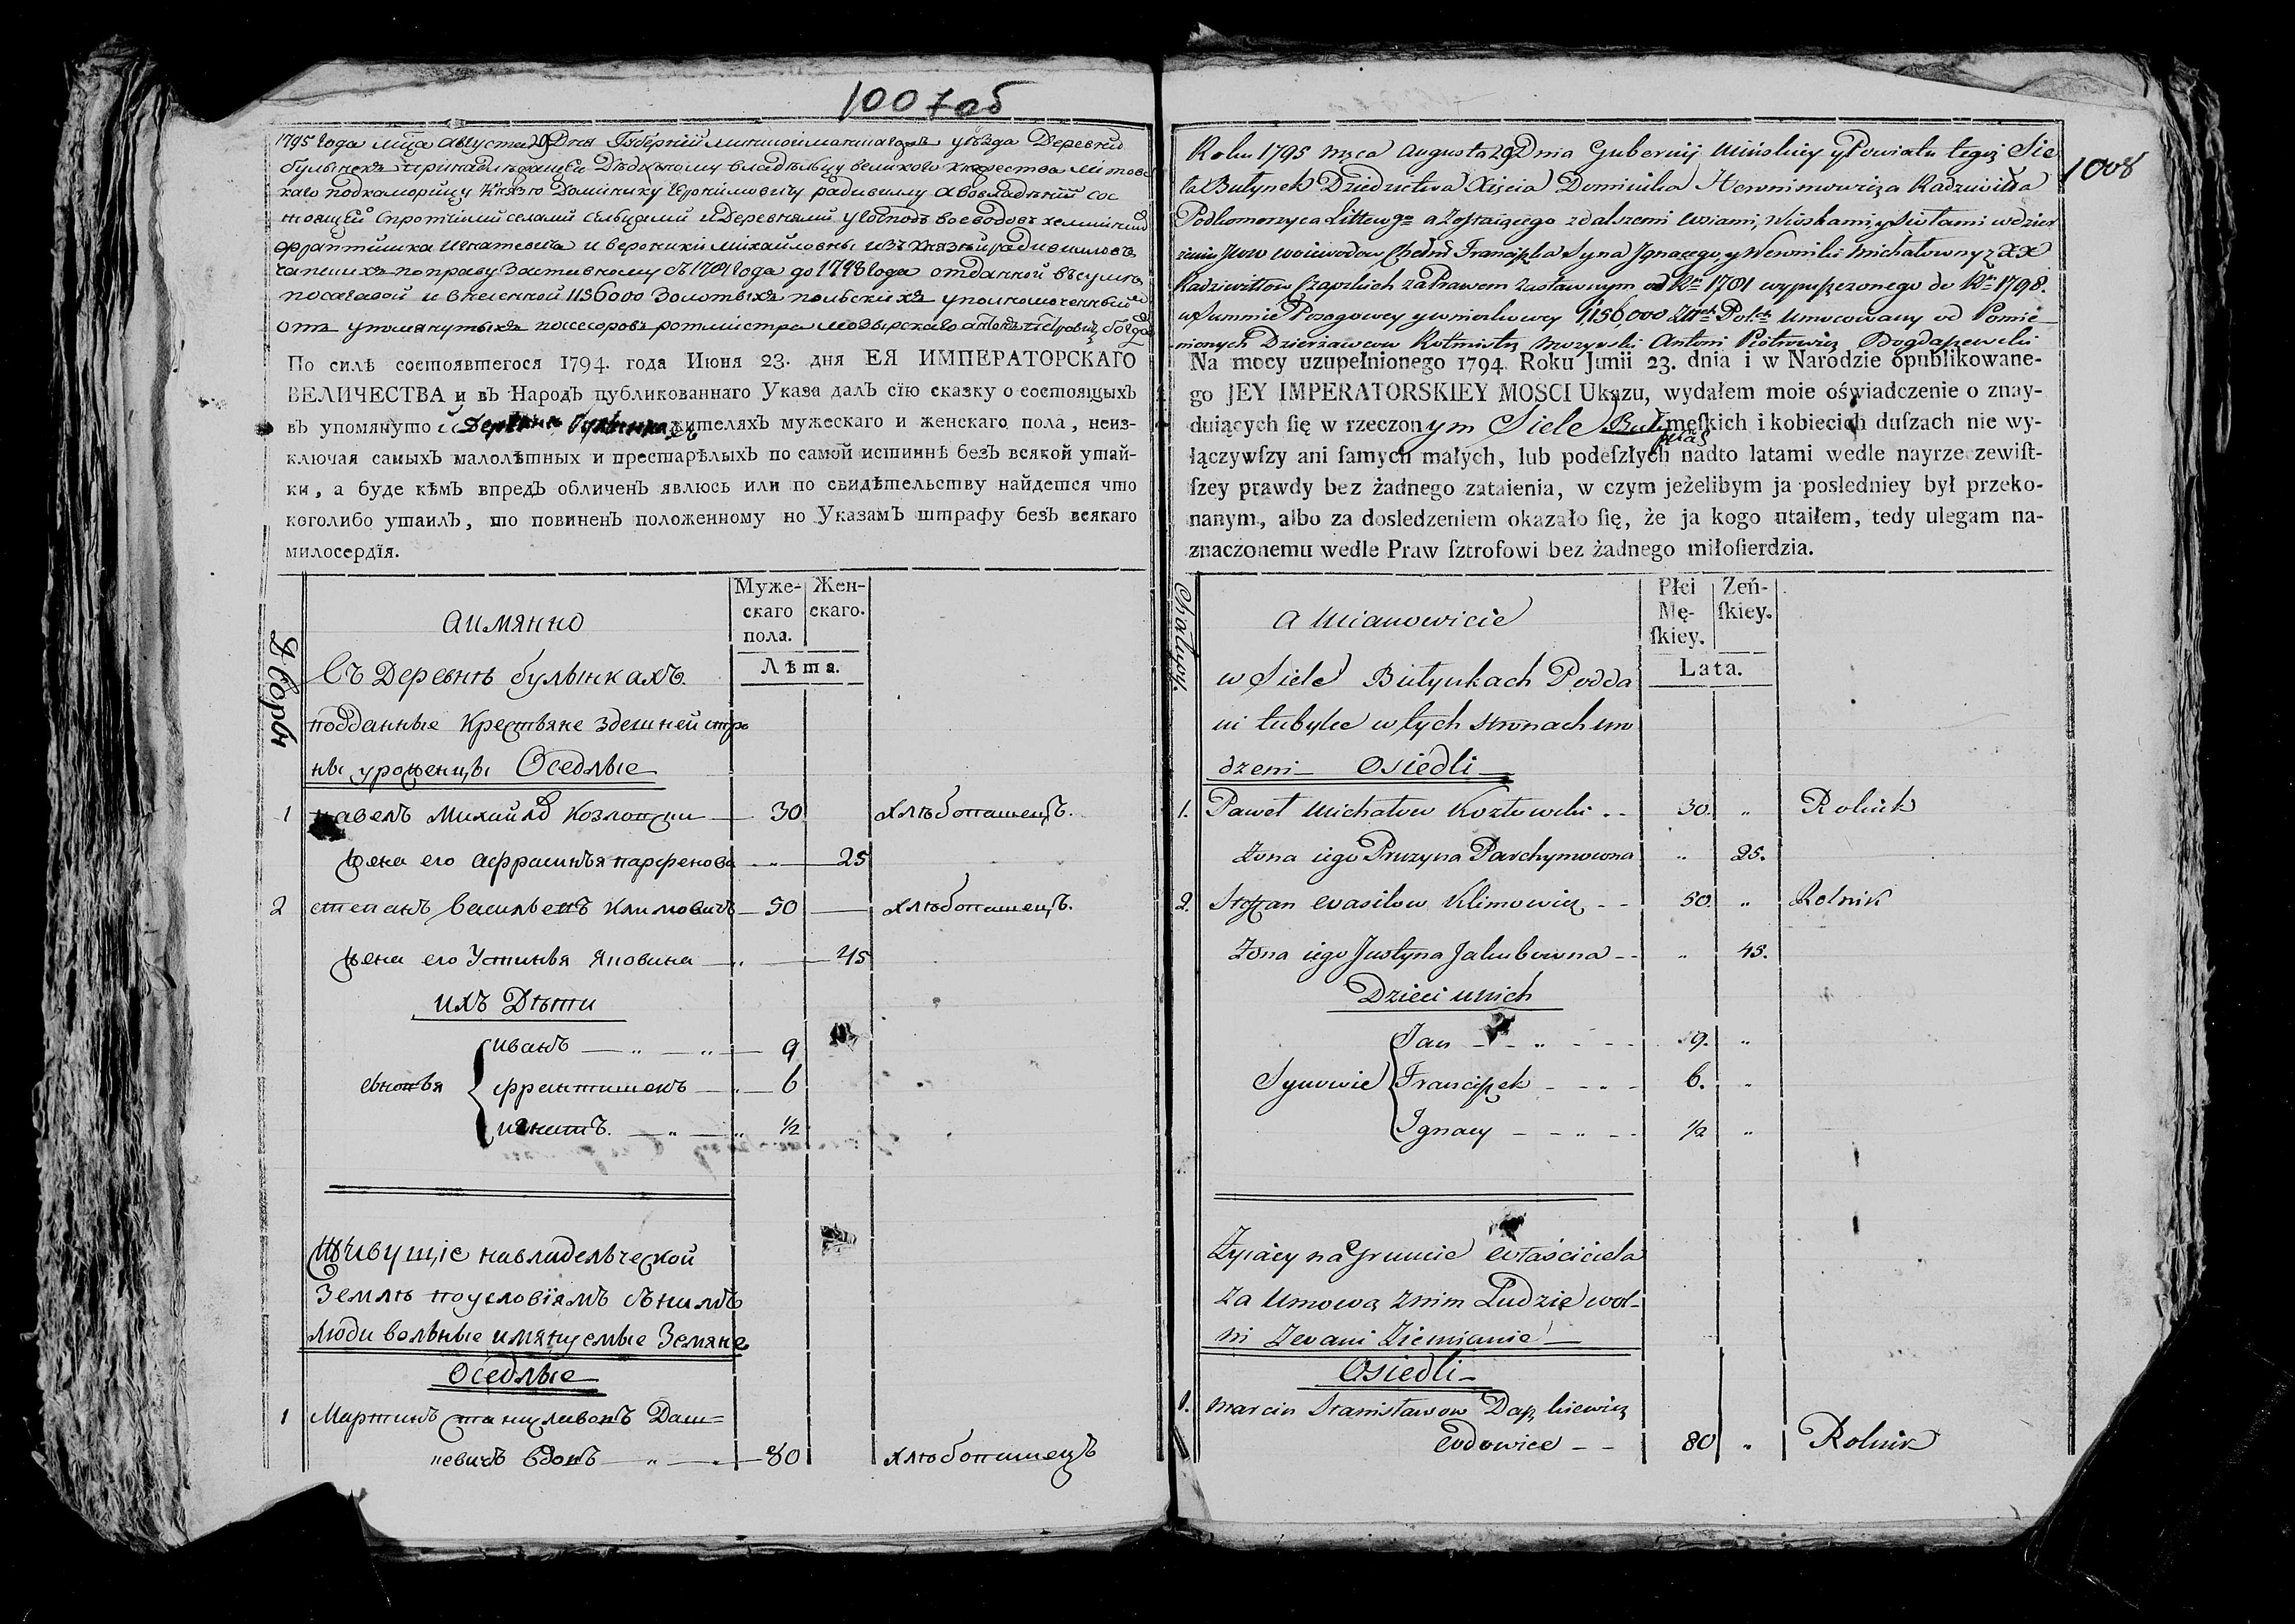 1007об
1795 года мца августа 29 Дня Губернии минской того уезда Деревни
булынекъ принадлежащей Дедичному владельцу великого княжества литовс
каго подкоморицу Князю Доминику Иеронимовичу радзивилу а во владении сос
тоящей спротчими селами и Деревнями у господъ воеводовъ хелминских
францишка игнатевича и вероники михайловны изъ князей радзивиловъ
чапскихъ по праву заставному съ 1781 года до 1798 года отданной въ сумме
посаговой и вненсенной 1156000 золотыхъ польскихъ уполномоченный
отъ упомянутыхъ поссесоровъ ротмистра мозырскаго антонъ петровичъ богда
По силѣ состоявшегося 1794. года Июня 23. дня ЕЯ ИМПЕРАТОРСКАГО
ВЕЛИЧЕСТВА и въ Народъ публикованнаго Указа далъ сїю сказку о состоящихъ
въ упомянутой Деревни Булынкахъ жителяхъ мужескаго и женскаго пола, неиз-
ключая самыхъ малолѣтныхъ и престарѣлыхъ по самой истиннѣ безъ всякой утай-
ки, а буде кѣмъ впредь обличенъ явлюсь или по свидѣтельству найдется что
коголибо утаилъ, то повиненъ положенному по Указамъ штрафу безъ всякаго
милосердїя.
Дворы
аимянно
Муже-
скаго
пола.
Жен-
скаго.
Лѣта.
Съ Деревне булынкахъ.
подданные Крествяне здешней стро
ны уроженцы Оседлые
1 павелъ михайлов козловски — 30 хлѣбопашецъ.
жена его афрасинья парфенова — 25
2 степанъ васильевъ климовичъ — 50 — хлѣбопашецъ.
жена его Устинья яковина — 45
ихъ Дѣти
иванъ — „ — „ — 9
сыновья францишекъ — „ — 6
игнатъ. — „ — „ ½
Живущіе навладельческой
Землѣ поусловїямъ съ нимъ
люди вольные имянуемые Земяне
Оседлые
1 Мартинъ станиславовъ Даш=
кевичъ вдовъ — „ — 80 хлѣбопашецъ
1008
Roku 1795 mca Augusta 29 Dnia Gubernij Mińskiey y Powiatu tegoż Sie
ła Bułynek Dziedzictwa Xięcia Dominika Heronimowicza Radziwiłła
Podkomorzyca Littewgo a Zostaiącego z dalszemi wsiami, Wioskami y Siołami w dzier
żeniu Jww woiewodow Chełm Franciszka Syna Ignacego y Weroniki Michałowny z XX
Radziwiłłow Czapskich za Prawem zastawnym od Ru 1781 wypuszczonego do Ru 1798.
w Summie Posagowey y wnioskowey 1,156,000 Złłch Polch Umocowany od Pomie
nionych Dzierżawcow Rotmistrz Mozyrski Antoni Piotrowicz Bogdaszewski
Na mocy uzupełnionego 1794 Roku Junii 23. dnia i w Narodzie opublikowane-
go JEY IMPERATORSKIEY MOSCI Ukazu, wydałem moie oświadczenie o znay-
duiących ſię w rzeczonym Siele Buł męſkich i kobiecich duſzach nie wy-
łączywſzy ani ſamych małych, lub podeſzłych nadto latami wedle nayrzeczewiſt-
ſzey prawdy bez żadnego zataienia, w czym jeżelibym ja posledniey był przeko-
nanym, albo za dosledzeniem okazało ſię, że ja kogo utaiłem, tedy ulegam na-
znaczonemu wedle Praw ſztrofowi bez żadnego miłoſierdzia.
Chałupy.
a Mianowicie
Płci
Mę-
ſkiey.
Zeń-
ſkiey.
Lata.
w Siele Bułynkach Podda
ni tubylce w tych stronach uro
dzeni — Osiedli
1. Paweł Michałow Kozłowski - - 30. „ Rolnik
Żona iego Pruzyna Parchymowna „ 25.
2. Stefan Wasilow Klimowicz - - 50. „ Rolnik
Żona iego Justyna Jakubowna - - „ 45.
Dzieci u nich
Jan - - „ - - - 9. „
Synowie Franciszek - - - - 6. „
Ignacy - - „ - - ½ „
Zyiący na Gruncie Właściciela
Za Umową z nim Ludzie wol-
ni Zwani Ziemianie —
Osiedli -
1. Marcin Stanisławow Daszkiewicz
Wdowiec - - 80 „ Rolnik